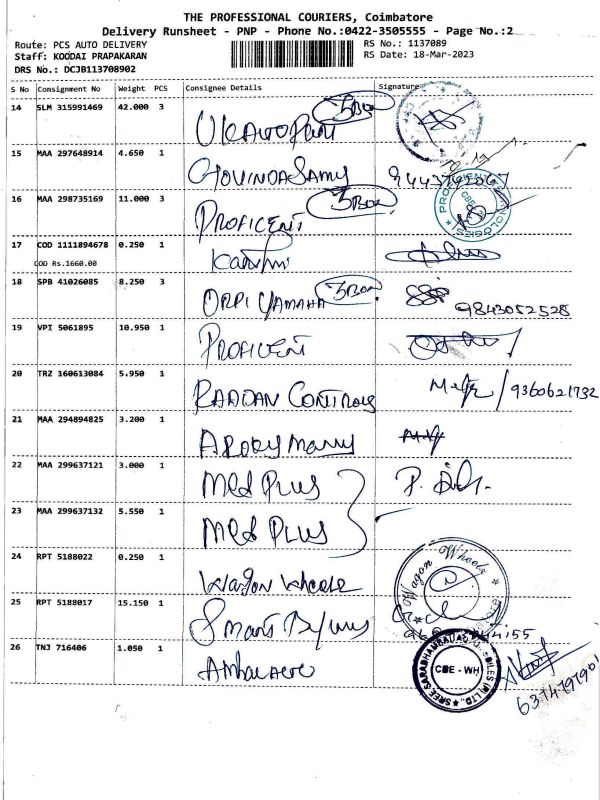 THE PROFESSIONAL COURIERS, Coimbatore
Delivery Runsheet - PNP - Phone No.:0422-3505555 - Page No.:2
Route: PCS AUTO DELIVERY
RS No.: 1137089
Staff: KOODAI PRAPAKARAN
RS Date: 18-Mar-2023
DRS No.: DCJB113708902
S No Consignment No Weight PCS Consignee Details Signature
14 SLM 315991469 42.000 3 3Box
15 MAA 297648914 4.650 1 GOVINDASAMY
16 MAA 298735169 11.000 3 PROFICENT 3Box
17 COD 1111894678 0.250 1
COD Rs.1660.00
18 SPB 41026085 8.250 3 ORPI YAMAHA 3Box 9843052528
19 VPI 5061895 10.950 1 PROFICENT
20 TRZ 160613084 5.950 1 RAADAN CONTROLS 9360621732
21 MAA 294894825 3.200 1
22 MAA 299637121 3.000 1 Med PLUS
23 MAA 299637132 5.550 1 Med PLUS
24 RPT 5188022 0.250 1 Wagon Wheels
Wagon Wheels
25 RPT 5188017 15.150 1 Smart
26 TNJ 716406 1.050 1
CBE - WH